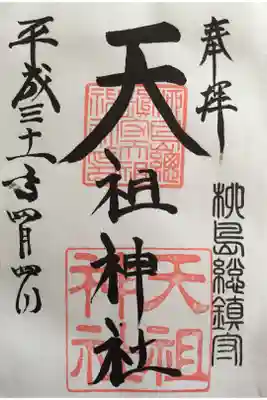 奉拝
柳島総鎮守
天祖神社
天祖
神社
平成三十一年四月四日